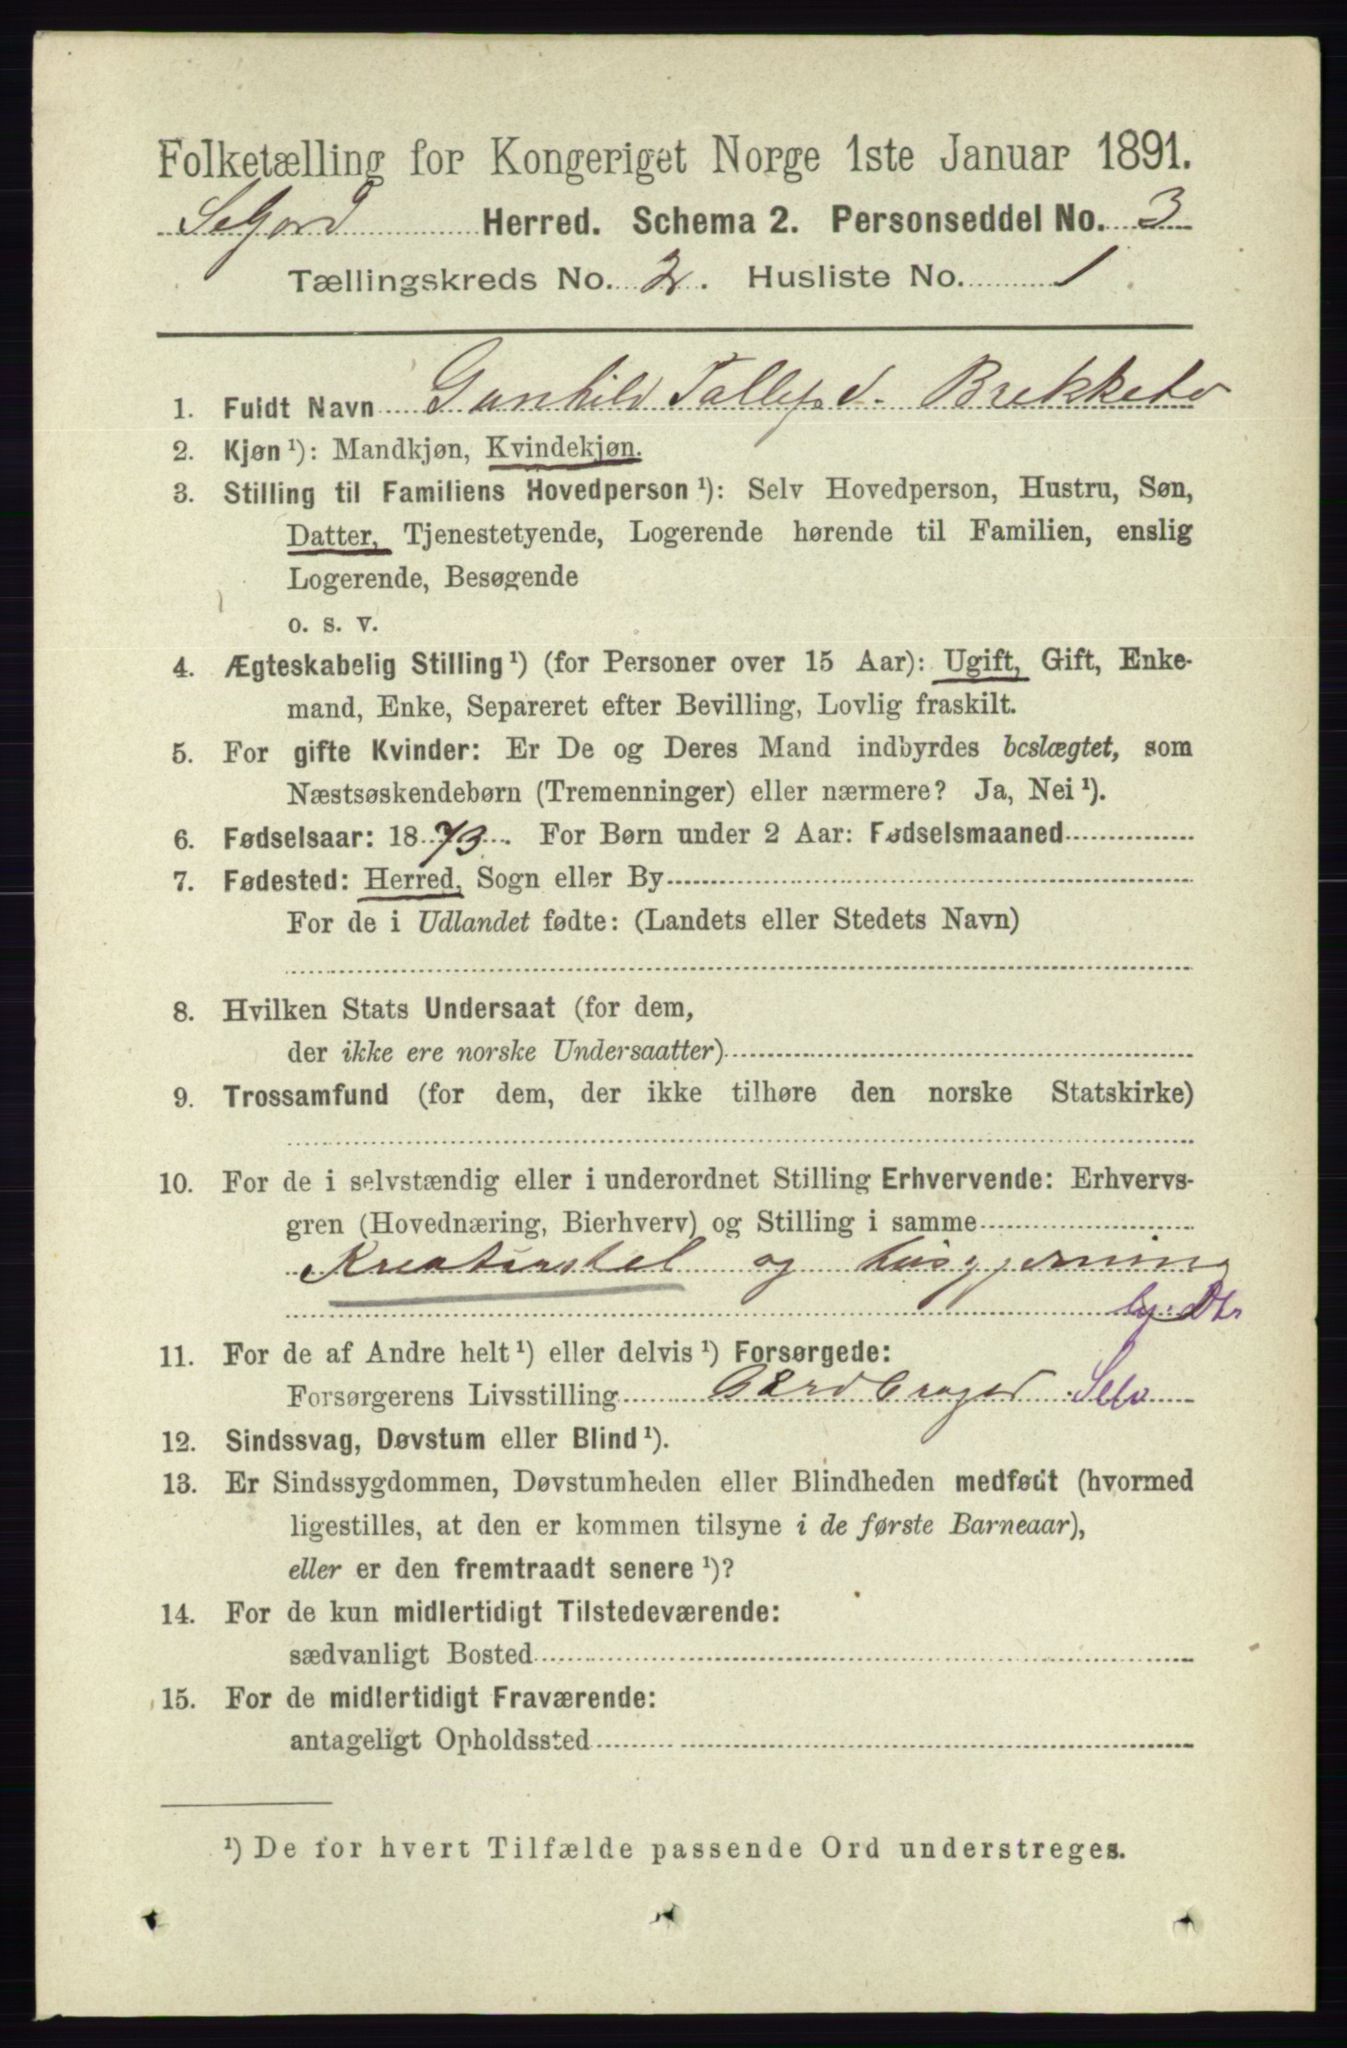 Folketælling for Kongeriget Norge 1ste Januar 1891.
Seljord Herred. Schema 2. Personseddel No. 3
Tællingskreds No. 2. Husliste No. 1
1. Fuldt Navn Gunhild Tallefsd. Brekkebo
2. Kjøn ¹): Mandkjøn, Kvindekjøn.
3. Stilling til Familiens Hovedperson ¹): Selv Hovedperson, Hustru, Søn,
Datter, Tjenestetyende, Logerende hørende til Familien, enslig
Logerende, Besøgende
o. s. v.
4. Ægteskabelig Stilling ¹) (for Personer over 15 Aar): Ugift, Gift, Enke-
mand, Enke, Separeret efter Bevilling, Lovlig fraskilt.
5. For gifte Kvinder: Er De og Deres Mand indbyrdes beslægtet, som
Næstsøskendebørn (Tremenninger) eller nærmere? Ja, Nei ¹).
6. Fødselsaar: 1873. For Børn under 2 Aar: Fødselsmaaned
7. Fødested: Herred, Sogn eller By
For de i Udlandet fødte: (Landets eller Stedets Navn)
8. Hvilken Stats Undersaat (for dem,
der ikke ere norske Undersaatter)
9. Trossamfund (for dem, der ikke tilhøre den norske Statskirke)
10. For de i selvstændig eller i underordnet Stilling Erhvervende: Erhvervs-
gren (Hovednæring, Bierhverv) og Stilling i samme
Kreaturstel og husgjerning
11. For de af Andre helt ¹) eller delvis ¹) Forsørgede:
Forsørgerens Livsstilling Gårdbruger Selv
12. Sindssvag, Døvstum eller Blind ¹).
13. Er Sindssygdommen, Døvstumheden eller Blindheden medfødt (hvormed
ligestilles, at den er kommen tilsyne i de første Barneaar),
eller er den fremtraadt senere ¹)?
14. For de kun midlertidigt Tilstedeværende:
sædvanligt Bosted
15. For de midlertidigt Fraværende:
antageligt Opholdssted
¹) De for hvert Tilfælde passende Ord understreges.